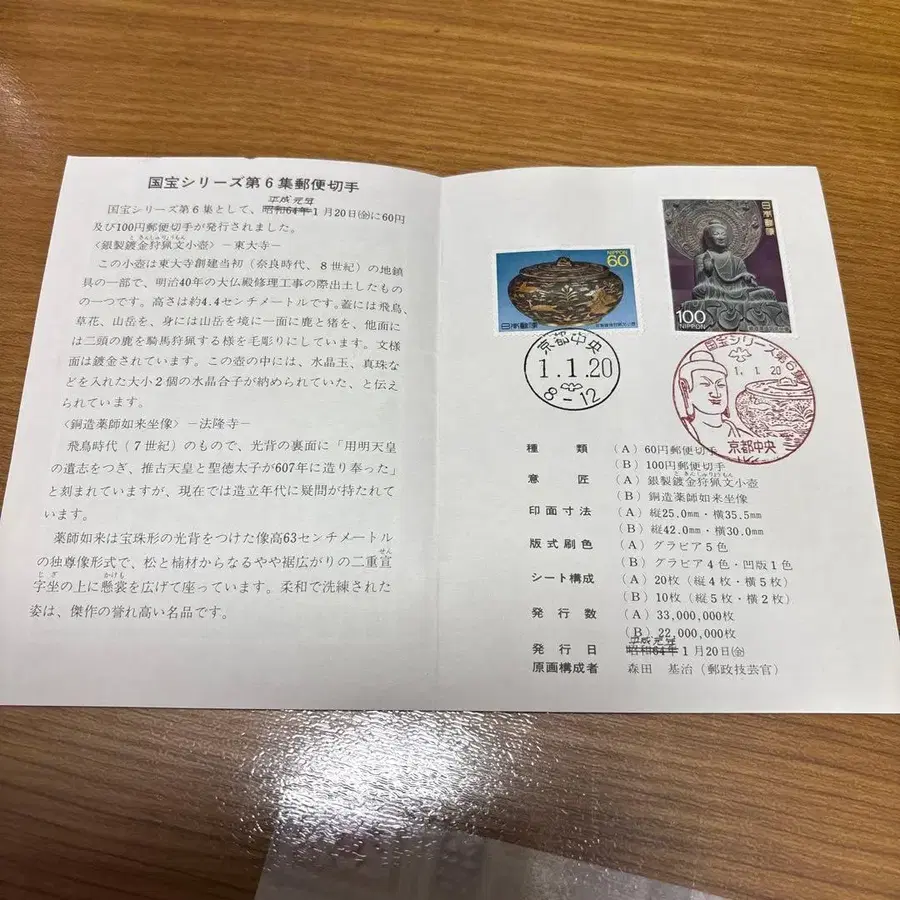 国宝シリーズ第6集郵便切手
平成元年
国宝シリーズ第6集として、昭和64年1月20日(金)に60円
及び100円郵便切手が発行されました。
と きんしゅりょうもん
〈銀製鍍金狩猟文小壺〉－東大寺－
この小壺は東大寺創建当初(奈良時代、8世紀)の地鎮
具の一部で、明治40年の大仏殿修理工事の際出土したもの
の一つです。高さは約4.4センチメートルです。蓋には飛鳥、
草花、山岳を、身には山岳を境に一面に鹿と猪を、他面に
は二頭の鹿を騎馬狩猟する様を毛彫りにしています。文様
面は鍍金されています。この壺の中には、水晶玉、真珠な
どを入れた大小2個の水晶合子が納められていた、と伝え
られています。
〈銅造薬師如来坐像〉－法隆寺－
飛鳥時代(7世紀)のもので、光背の裏面に「用明天皇
の遺志をつぎ、推古天皇と聖徳太子が607年に造り奉った」
と刻まれていますが、現在では造立年代に疑問が持たれて
います。
薬師如来は宝珠形の光背をつけた像高63センチメートル
の独尊像形式で、松と楠材からなるやや裾広がりの二重宣
せん
じ ざ かけも
字坐の上に懸裳を広げて座っています。柔和で洗練された
姿は、傑作の誉れ高い名品です。
NIPPON
60
日本郵便
日本郵便
100
NIPPON
京都中央
1.1.20
8-12
国宝シリーズ第6集
1.1.20
京都中央
種類 (A) 60円郵便切手
(B) 100円郵便切手
と きんしゅりょうもん
意匠 (A) 銀製鍍金狩猟文小壺
(B) 銅造薬師如来坐像
印面寸法 (A) 縦25.0mm・横35.5mm
(B) 縦42.0mm・横30.0mm
版式刷色 (A) グラビア5色
(B) グラビア4色・凹版1色
シート構成 (A) 20枚(縦4枚・横5枚)
(B) 10枚(縦5枚・横2枚)
発行数 (A) 33,000,000枚
(B) 22,000,000枚
平成元年
発行日 昭和64年1月20日(金)
原画構成者 森田 基治(郵政技芸官)